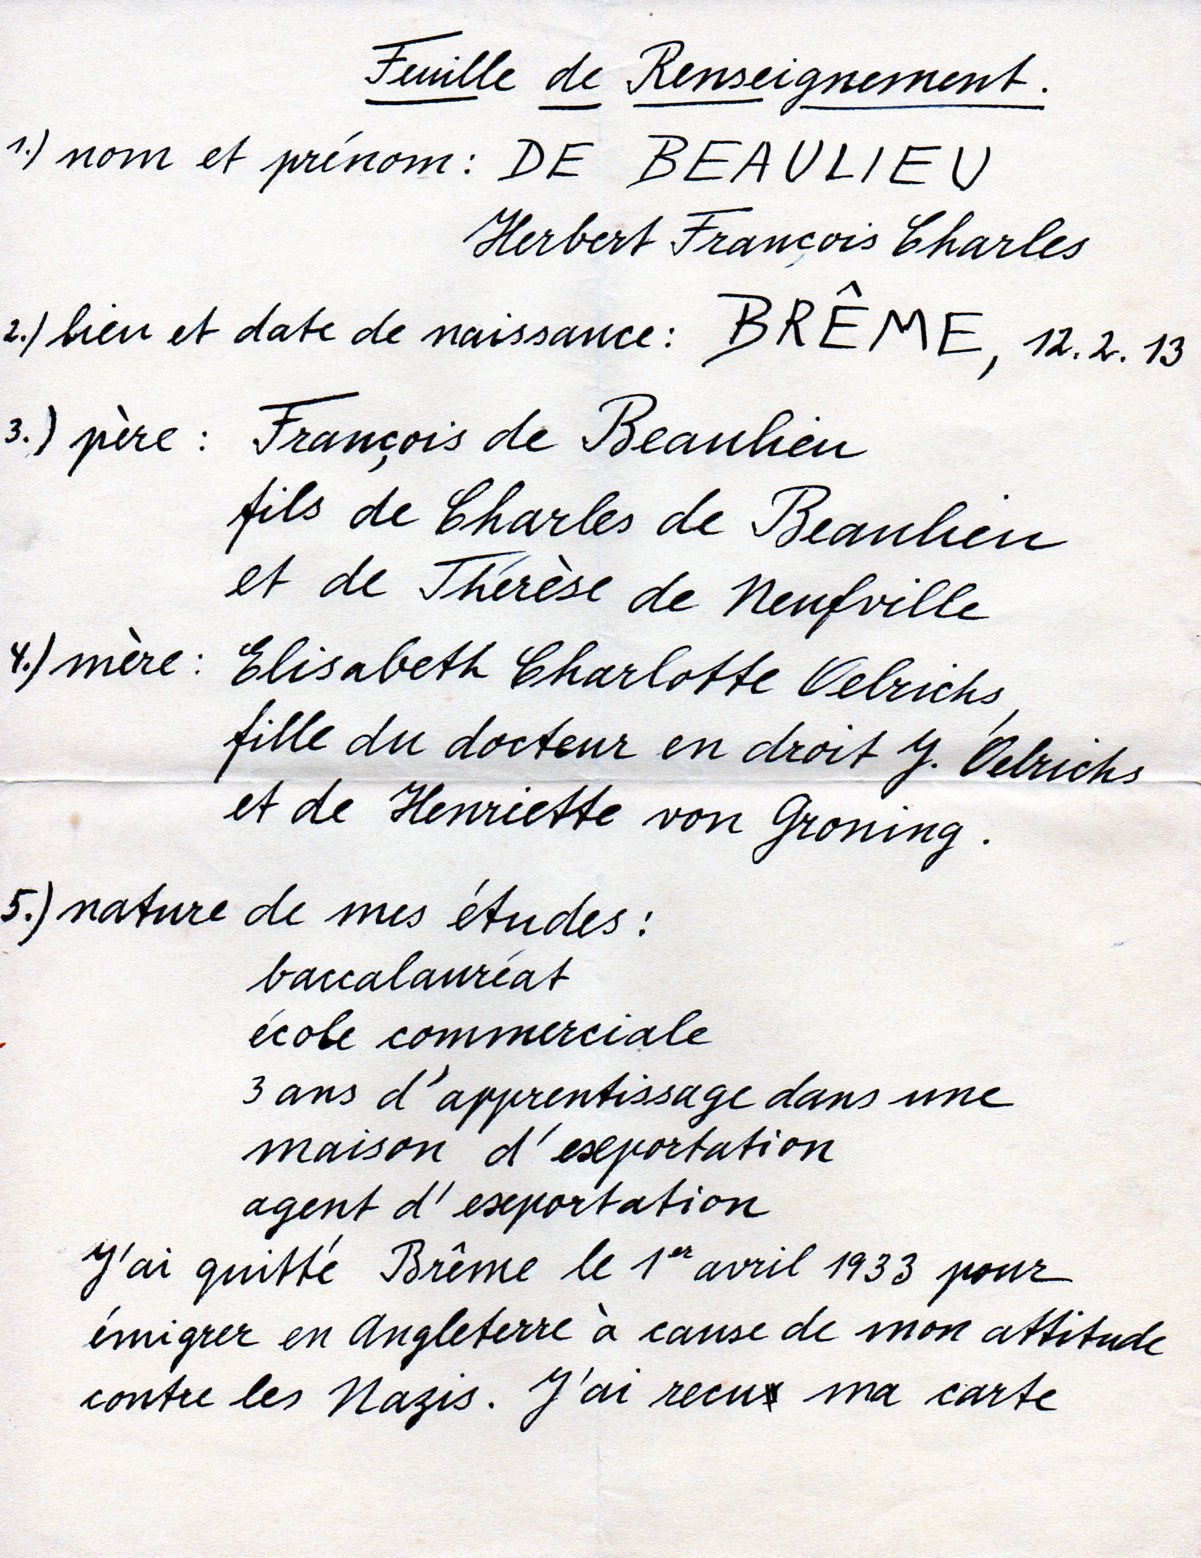 Feuille de Renseignement.
1.) nom et prénom: DE BEAULIEU
Herbert François Charles
2.) lieu et date de naissance: BRÊME, 12.2.13
3.) père: François de Beaulieu
fils de Charles de Beaulieu
et de Thérèse de Neufville
4.) mère: Elisabeth Charlotte Oelrichs,
fille du docteur en droit J. Oelrichs
et de Henriette von Gröning.
5.) nature de mes études:
baccalauréat
école commerciale
3 ans d'apprentissage dans une
maison d'exportation
agent d'exportation
J'ai quitté Brême le 1er avril 1933 pour
émigrer en Angleterre à cause de mon attitude
contre les Nazis. J'ai recu ma carte